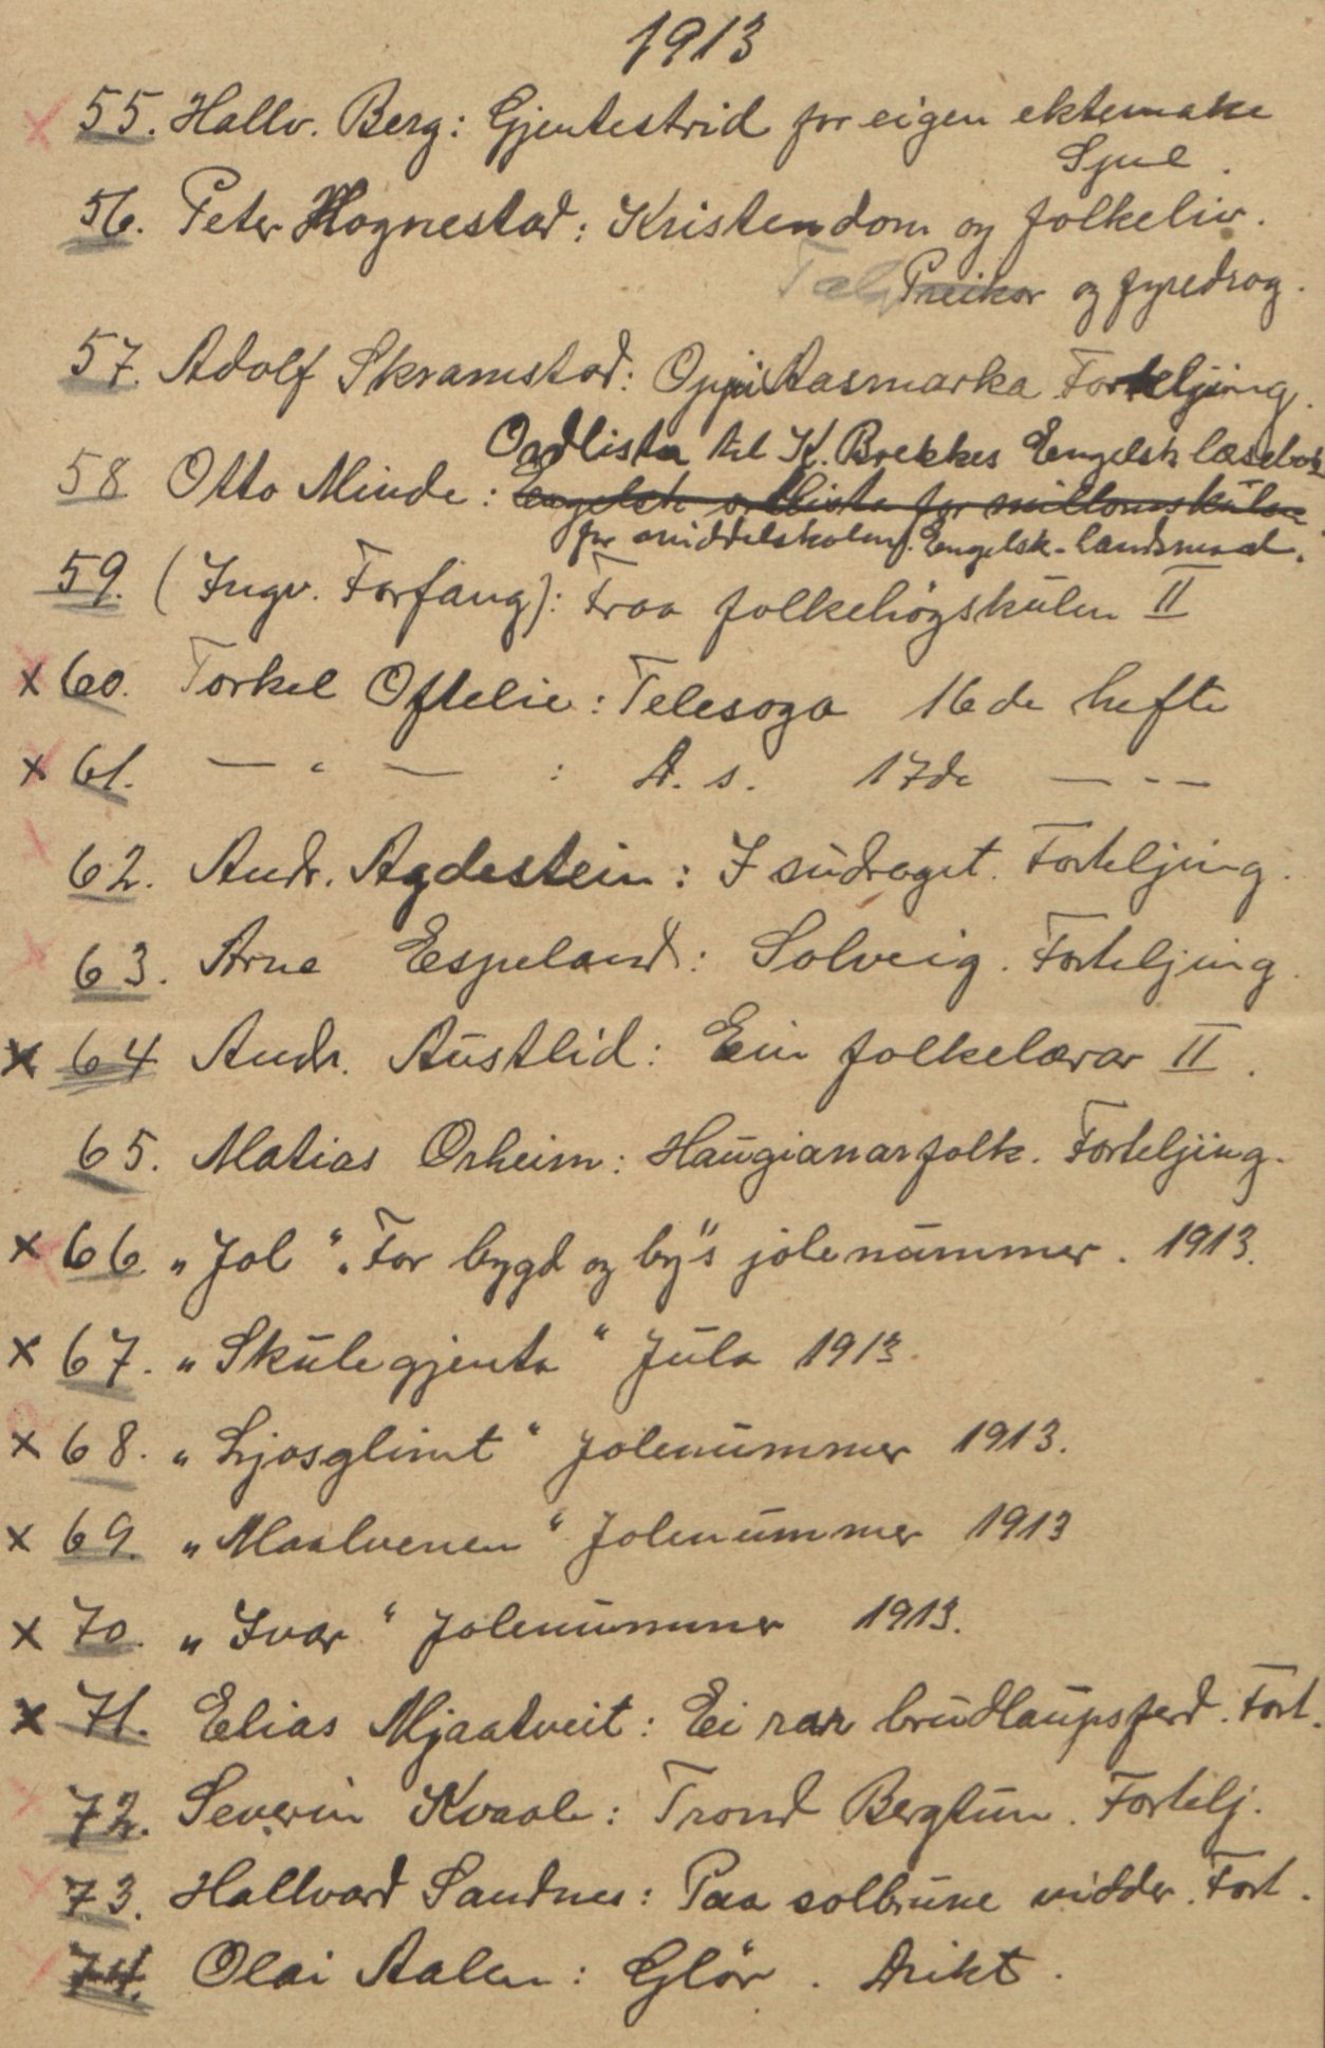 1913
55. Hallv. Berg: Gjentestrid for eigen ektemake
Spel.
56. Peter Hognestad: Kristendom og folkeliv.
Preikor og fyredrag.
57. Adolf Skramstad: Oppi Aasmarka Forteljing.
Ordlista til K. Brekkes Engelsk læsebok
58 Otto Minde: Engelsk ordlista for millomskulen
for middelskolen. Engelsk-landsmaal.
59. (Ingv. Forfang): Fraa folkehögskulen II
x 60. Torkel Oftelie: Telesoga 16de hefte
x 61. — " — : D. s. 17de — - —
62. Andr. Agdestein: I sudraget. Forteljing.
63. Arne Espeland: Solveig. Forteljing.
x 64 Andr. Austlid: Ein folkelærar II.
65. Matias Orheim: Haugianarfolk. Forteljing.
x 66 „Jol“. For bygd og by's jolenummer. 1913.
x 67. „Skulegjenta“ Jula 1913.
x 68. „Ljosglimt“ Jolenummer 1913.
x 69. „Maalvenen“ Jolenummer 1913
x 70. „Ivar“ Jolenummer 1913.
x 71. Elias Mjaatveit: Ei rar brudlaupsferd. Fort.
72. Severin Kvaale: Trond Bergtun. Fortelj.
73. Hallvard Sandnes: Paa solbrune vidder. Fort.
74. Olai Aalen: Glör. Dikt.